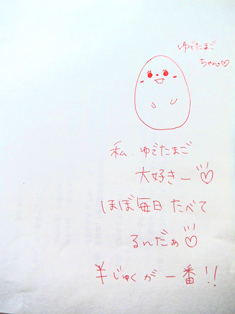 ゆでたまご
ちゃん♡
私、ゆでたまご
大好きー♡
ほぼ毎日たべて
るんだぁ♡
半じゅくが一番!!